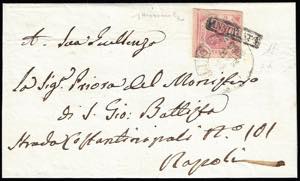 A Sua Eccellenza
ANNULLATO
La Sig.ª Priora del Monistero
di S. Gio: Battista
Strada Costantinopoli N.º 101
Napoli